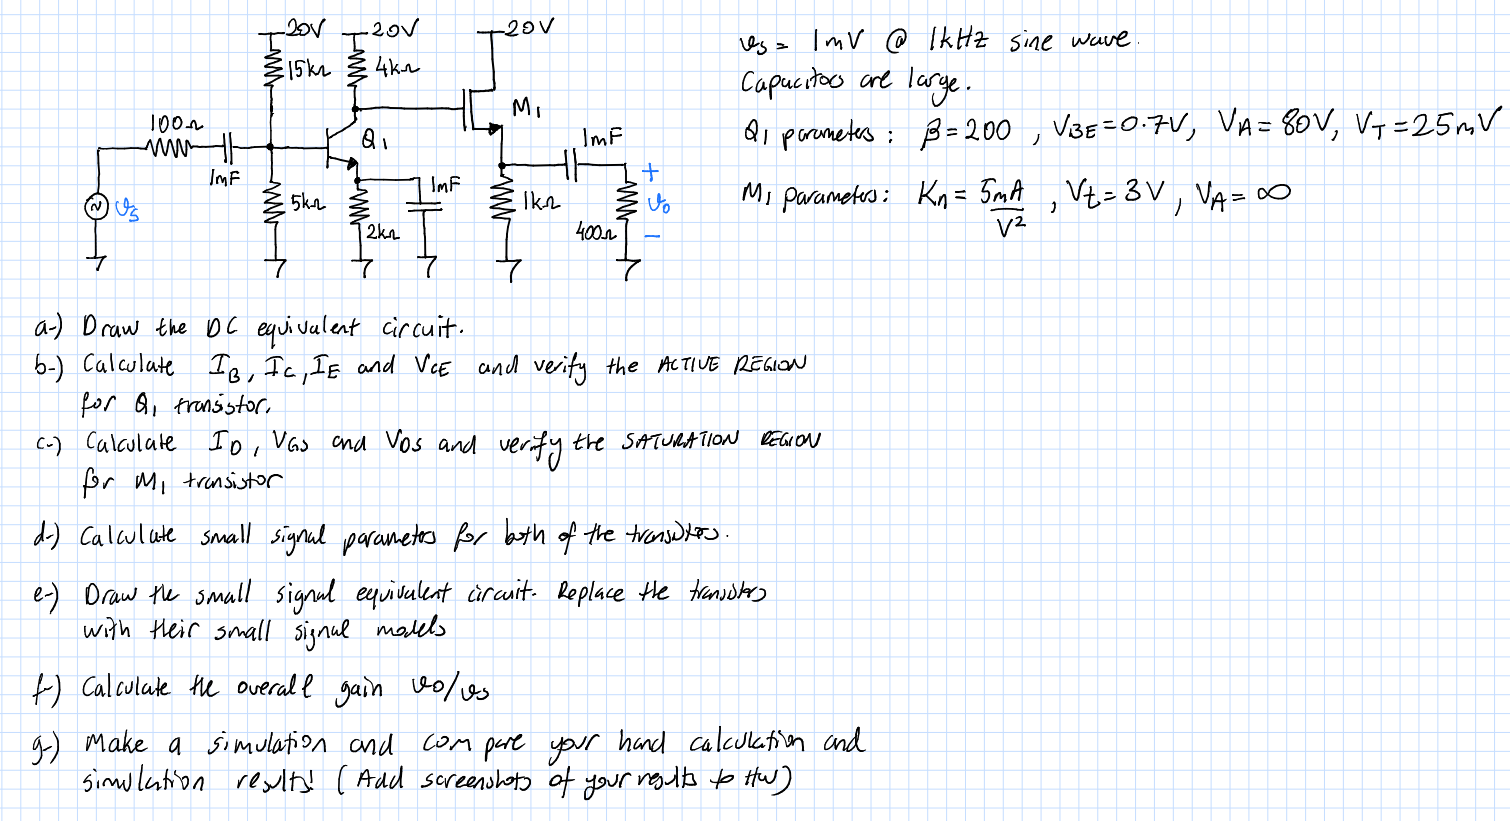 20V 20V 20V
15kΩ 4kΩ
M1
100Ω
Q1
1mF
1mF
1mF
+
vs
5kΩ
2kΩ
1kΩ
vo
400Ω
−
vs = 1mV @ 1kHz sine wave.
Capacitors are large.
Q1 parameters : β = 200 , VBE = 0.7V, VA = 80V, VT = 25mV
M1 parameters: Kn = 5mA/V² , Vt = 3V , VA = ∞
a-) Draw the DC equivalent circuit.
b-) Calculate IB, IC, IE and VCE and verify the ACTIVE REGION
for Q1 transistor.
c-) Calculate ID, VGS and VDS and verify the SATURATION REGION
for M1 transistor
d-) Calculate small signal parameters for both of the transistors.
e-) Draw the small signal equivalent circuit. Replace the transistors
with their small signal models
f-) Calculate the overall gain vo/vs
g-) Make a simulation and compare your hand calculation and
simulation results! (Add screenshots of your results to HW)